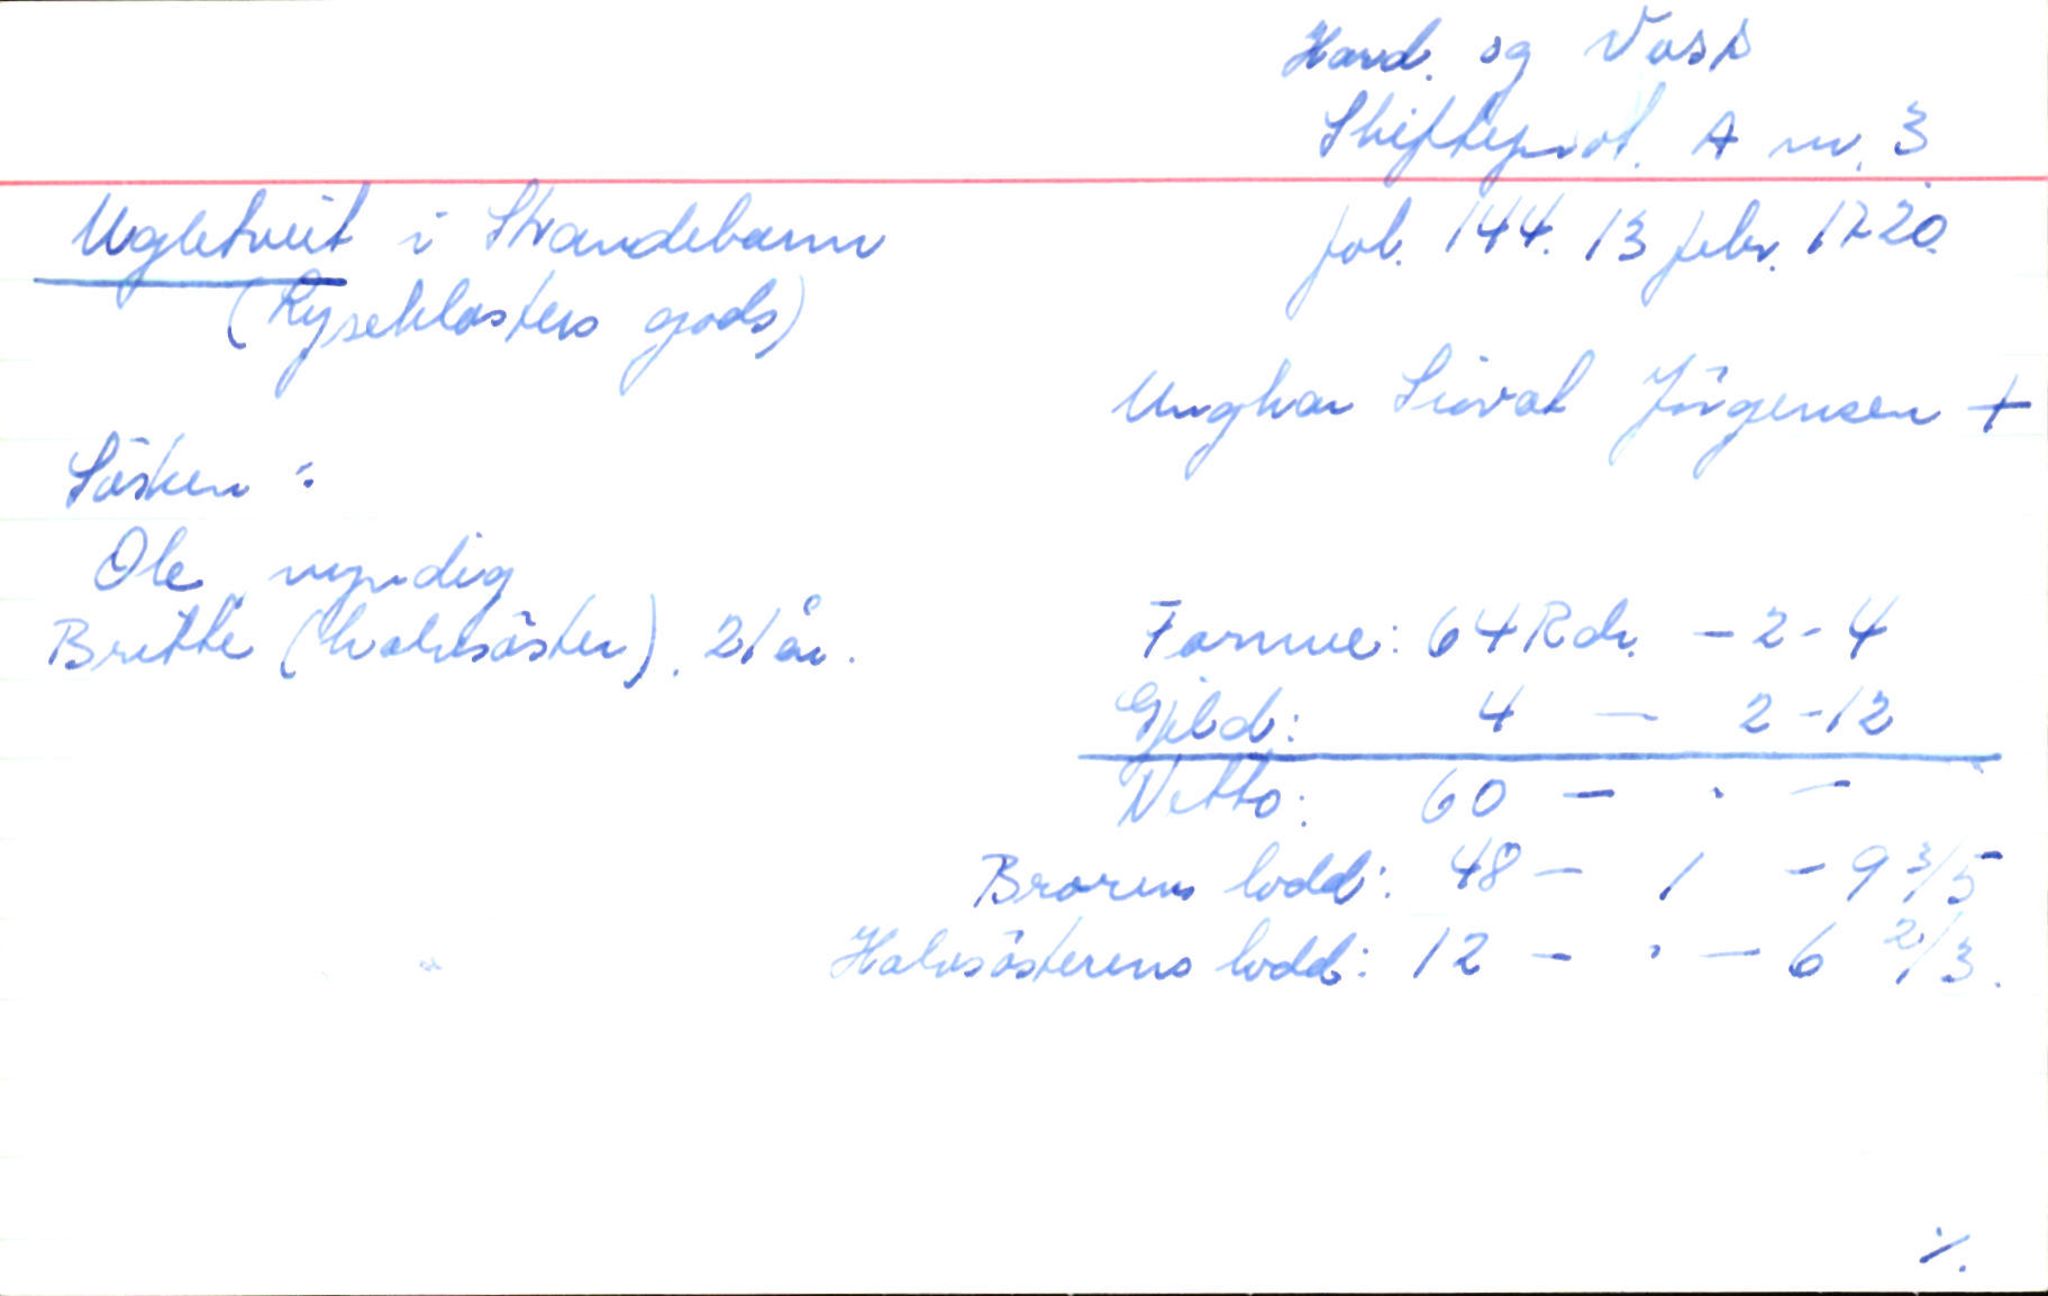 Hard. og Voss
Skifteprot. A nr. 3
Ugletveit i Strandebarm
fol. 144. 13 febr. 1720.
(Lyseklosters gods)
Ungkar Siovat Jörgensen +
Sösken :
Ole myndig
Britte (halvsöster). 21 år.
Formue: 64 Rdr. - 2 - 4
Gjeld: 4 — 2 - 12
Netto: 60 — . —
Brorens lodd: 48 — 1 — 9 3/5
Halvsösterens lodd: 12 — . — 6 2/3.
·/.